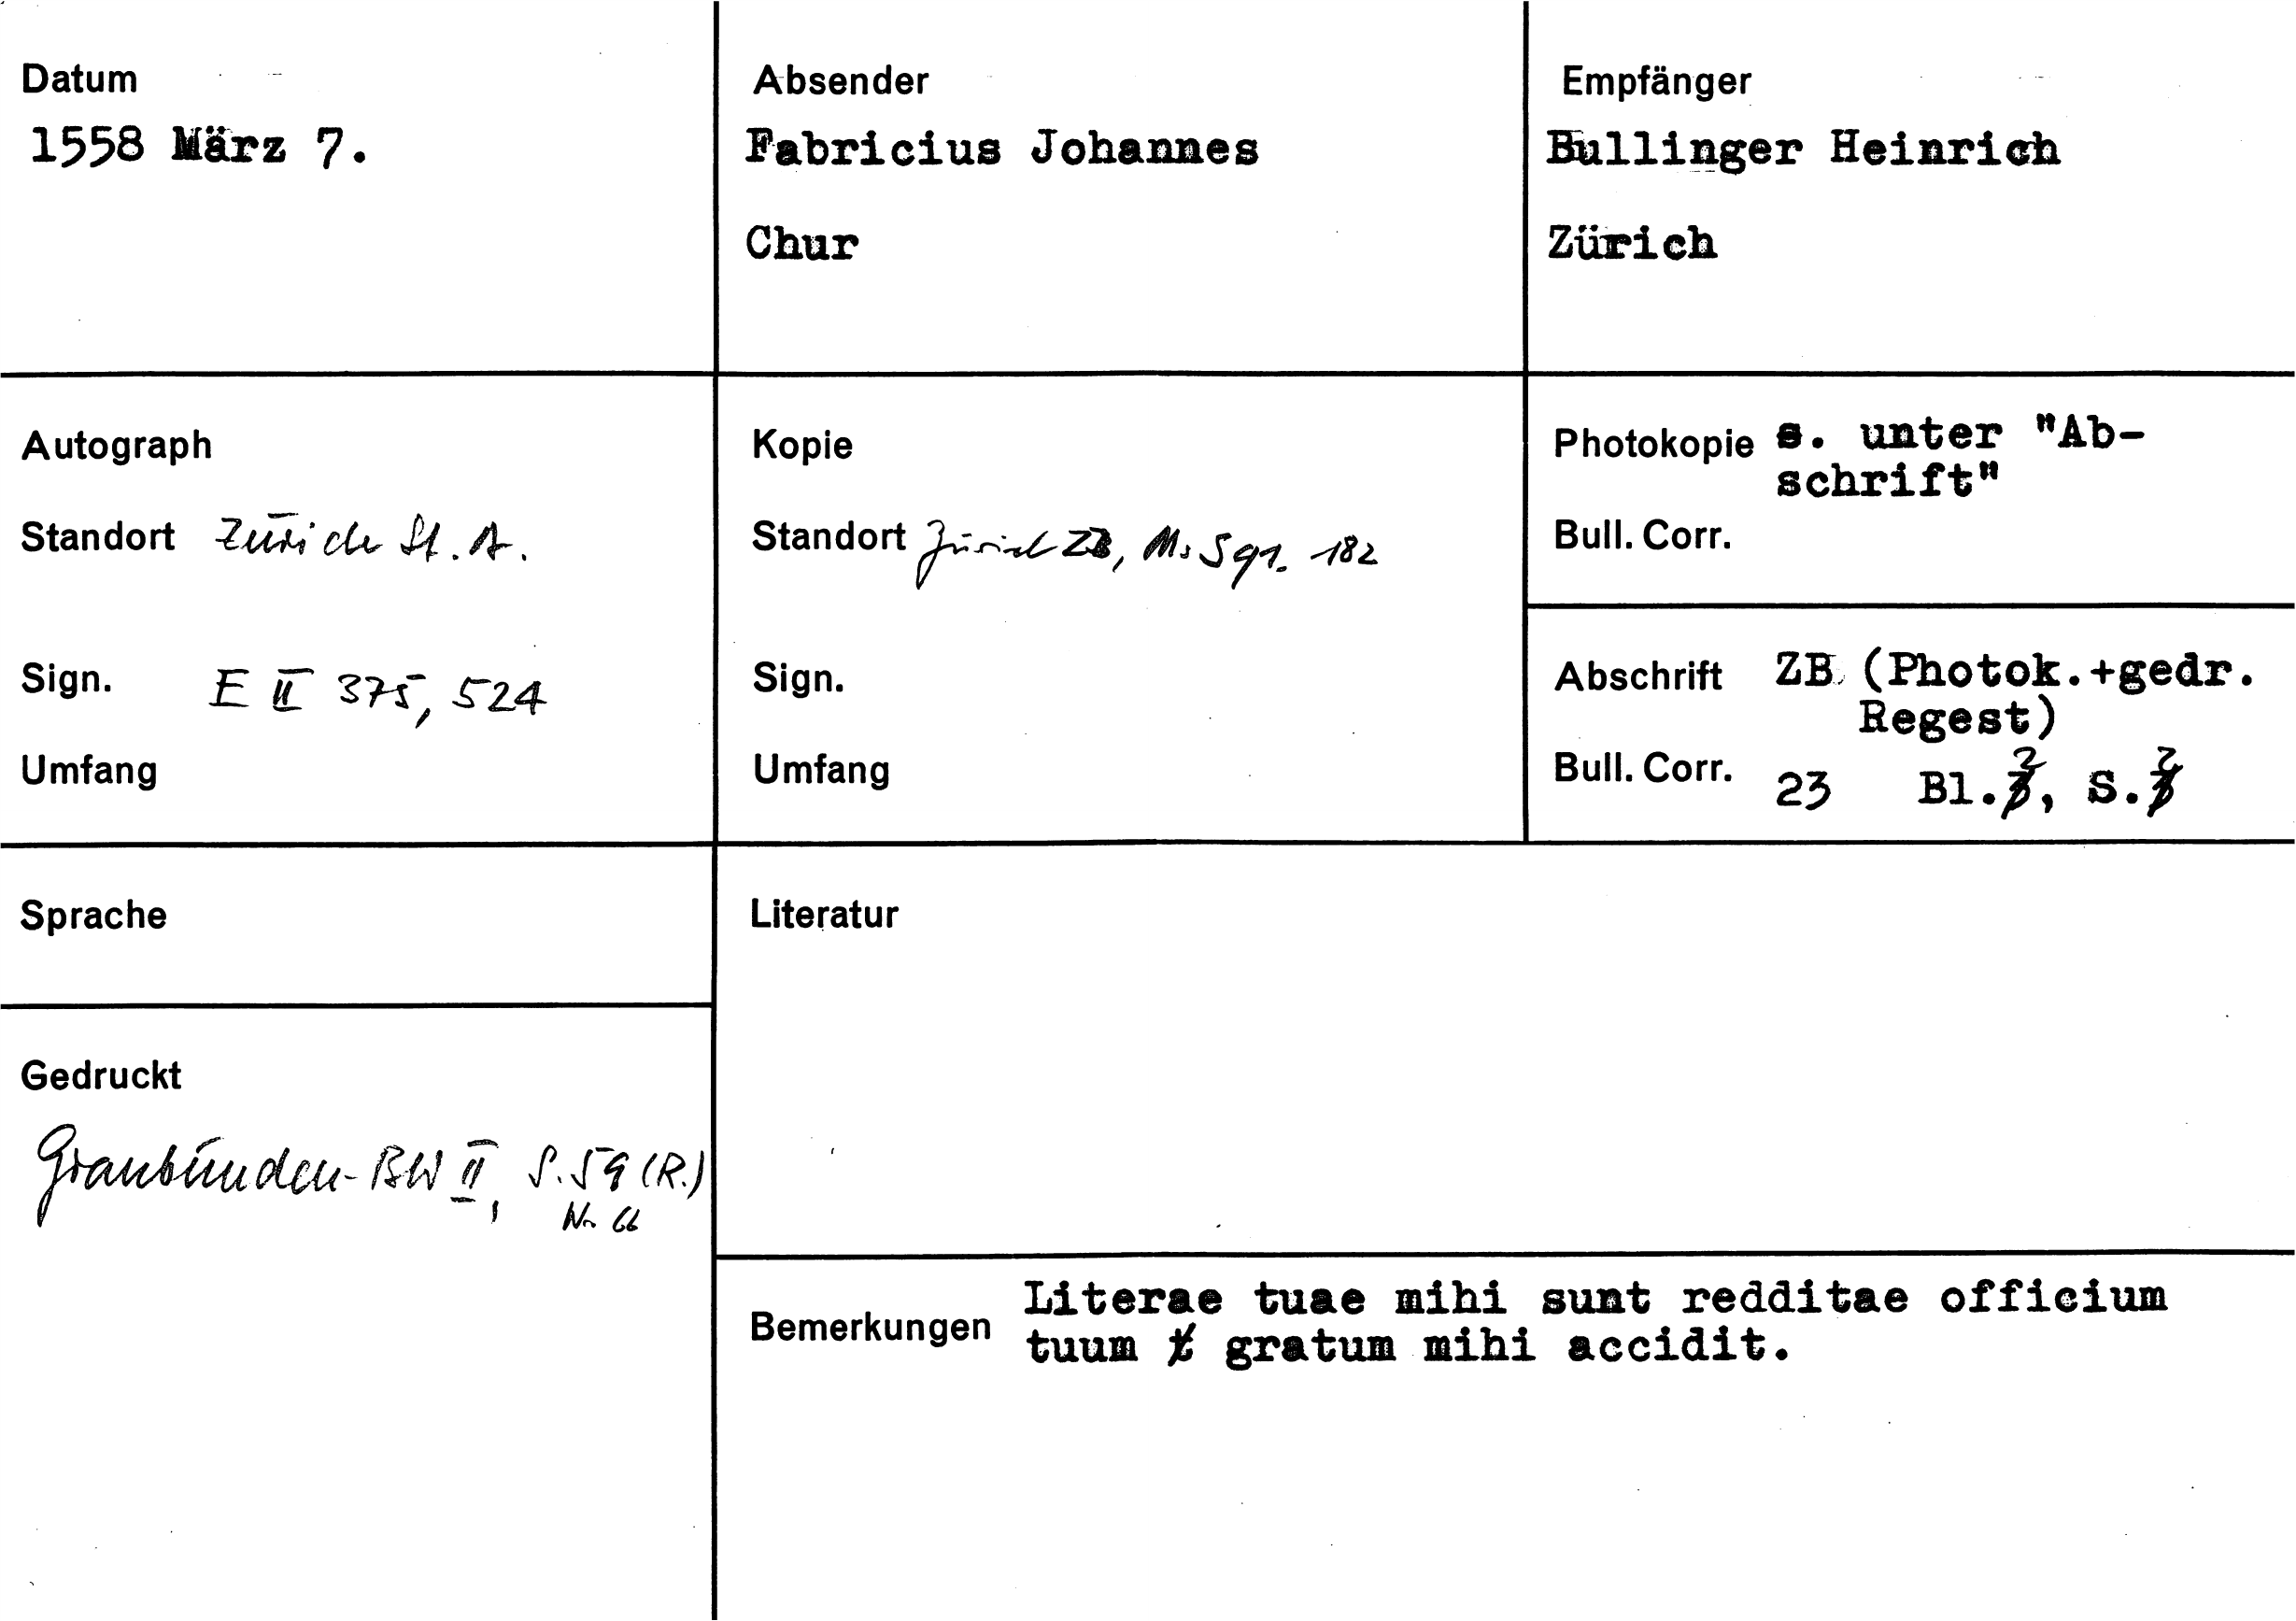 Datum
1558 März 7.
Absender
Fabricius Johannes
Chur
Empfänger
Bullinger Heinrich
Zürich
Autograph
Standort Zürich St. A.
Sign. E II 375, 524
Umfang
Kopie
Standort Zürich ZB, Ms S 91. 182
Sign.
Umfang
Photokopie s. unter "Ab-
schrift"
Bull. Corr.
Abschrift ZB (Photok.+gedr.
Regest)
Bull. Corr. 23 Bl. 2, S. 2
Sprache
Literatur
Gedruckt
Graubünden-BW II, S. 59 (R.)
Nr. 66
Bemerkungen Literae tuae mihi sunt redditae officium
tuum gratum mihi accidit.